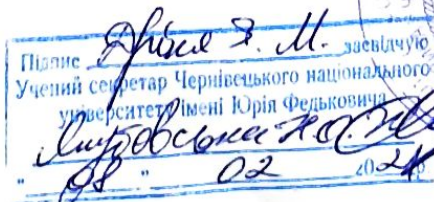 Підпис Дріня Я. М. засвідчую
Учений секретар Чернівецького національного
університету імені Юрія Федьковича
Якубовська Н.О.
" 08 " 02 2024 р.